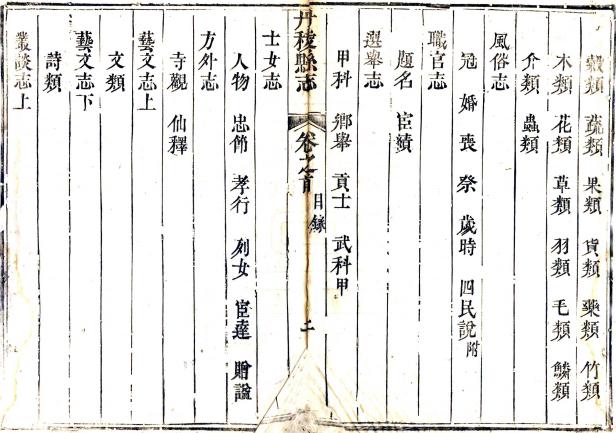 穀類 蔬類 果類 貨類 藥類 竹類
木類 花類 草類 羽類 毛類 鱗類
介類 蟲類
風俗志
冠 婚 喪 祭 歲時 四民說附
職官志
題名 宦績
選舉志
甲科 鄉舉 貢士 武科甲
丹稜縣志 卷之首 目錄 二
士女志
人物 忠節 孝行 列女 宦達 贈諡
方外志
寺觀 仙釋
藝文志上
文類
藝文志下
詩類
叢談志上